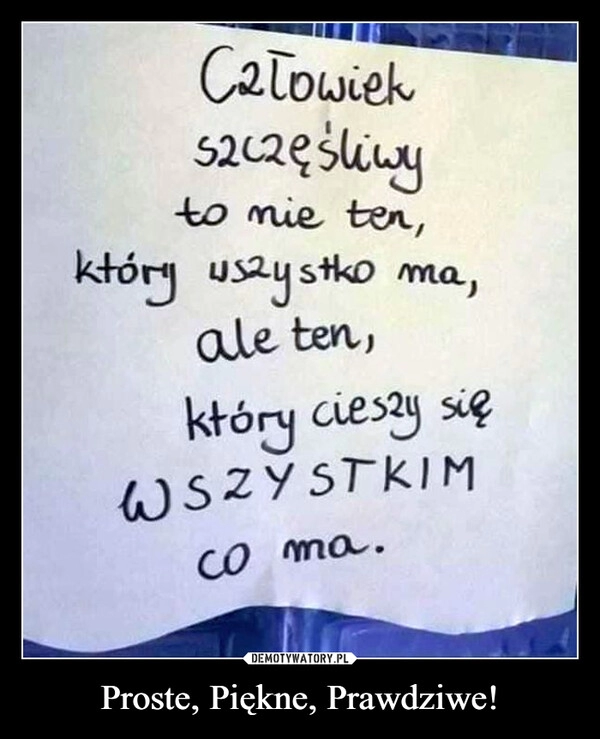 Człowiek
szczęśliwy
to nie ten,
który wszystko ma,
ale ten,
który cieszy się
WSZYSTKIM
co ma.
DEMOTYWATORY.PL
Proste, Piękne, Prawdziwe!